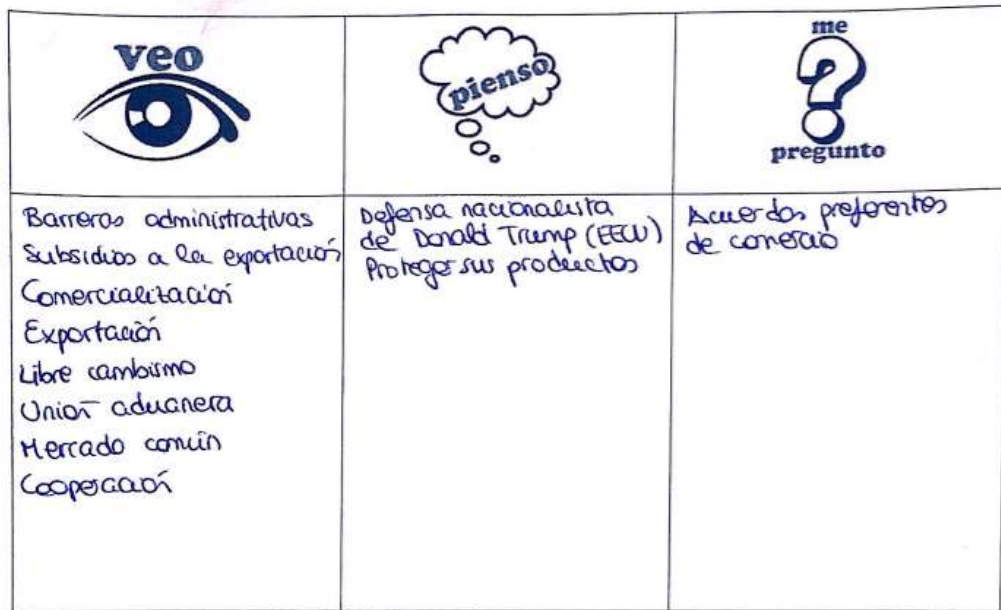 veo
pienso
me
pregunto
Barreras administrativas
Subsidios a la exportación
Comercialización
Exportación
Libre cambismo
Unión aduanera
Mercado común
Cooperación
Defensa nacionalista
de Donald Trump (EEUU)
Proteger sus productos
Acuerdos preferentes
de comercio